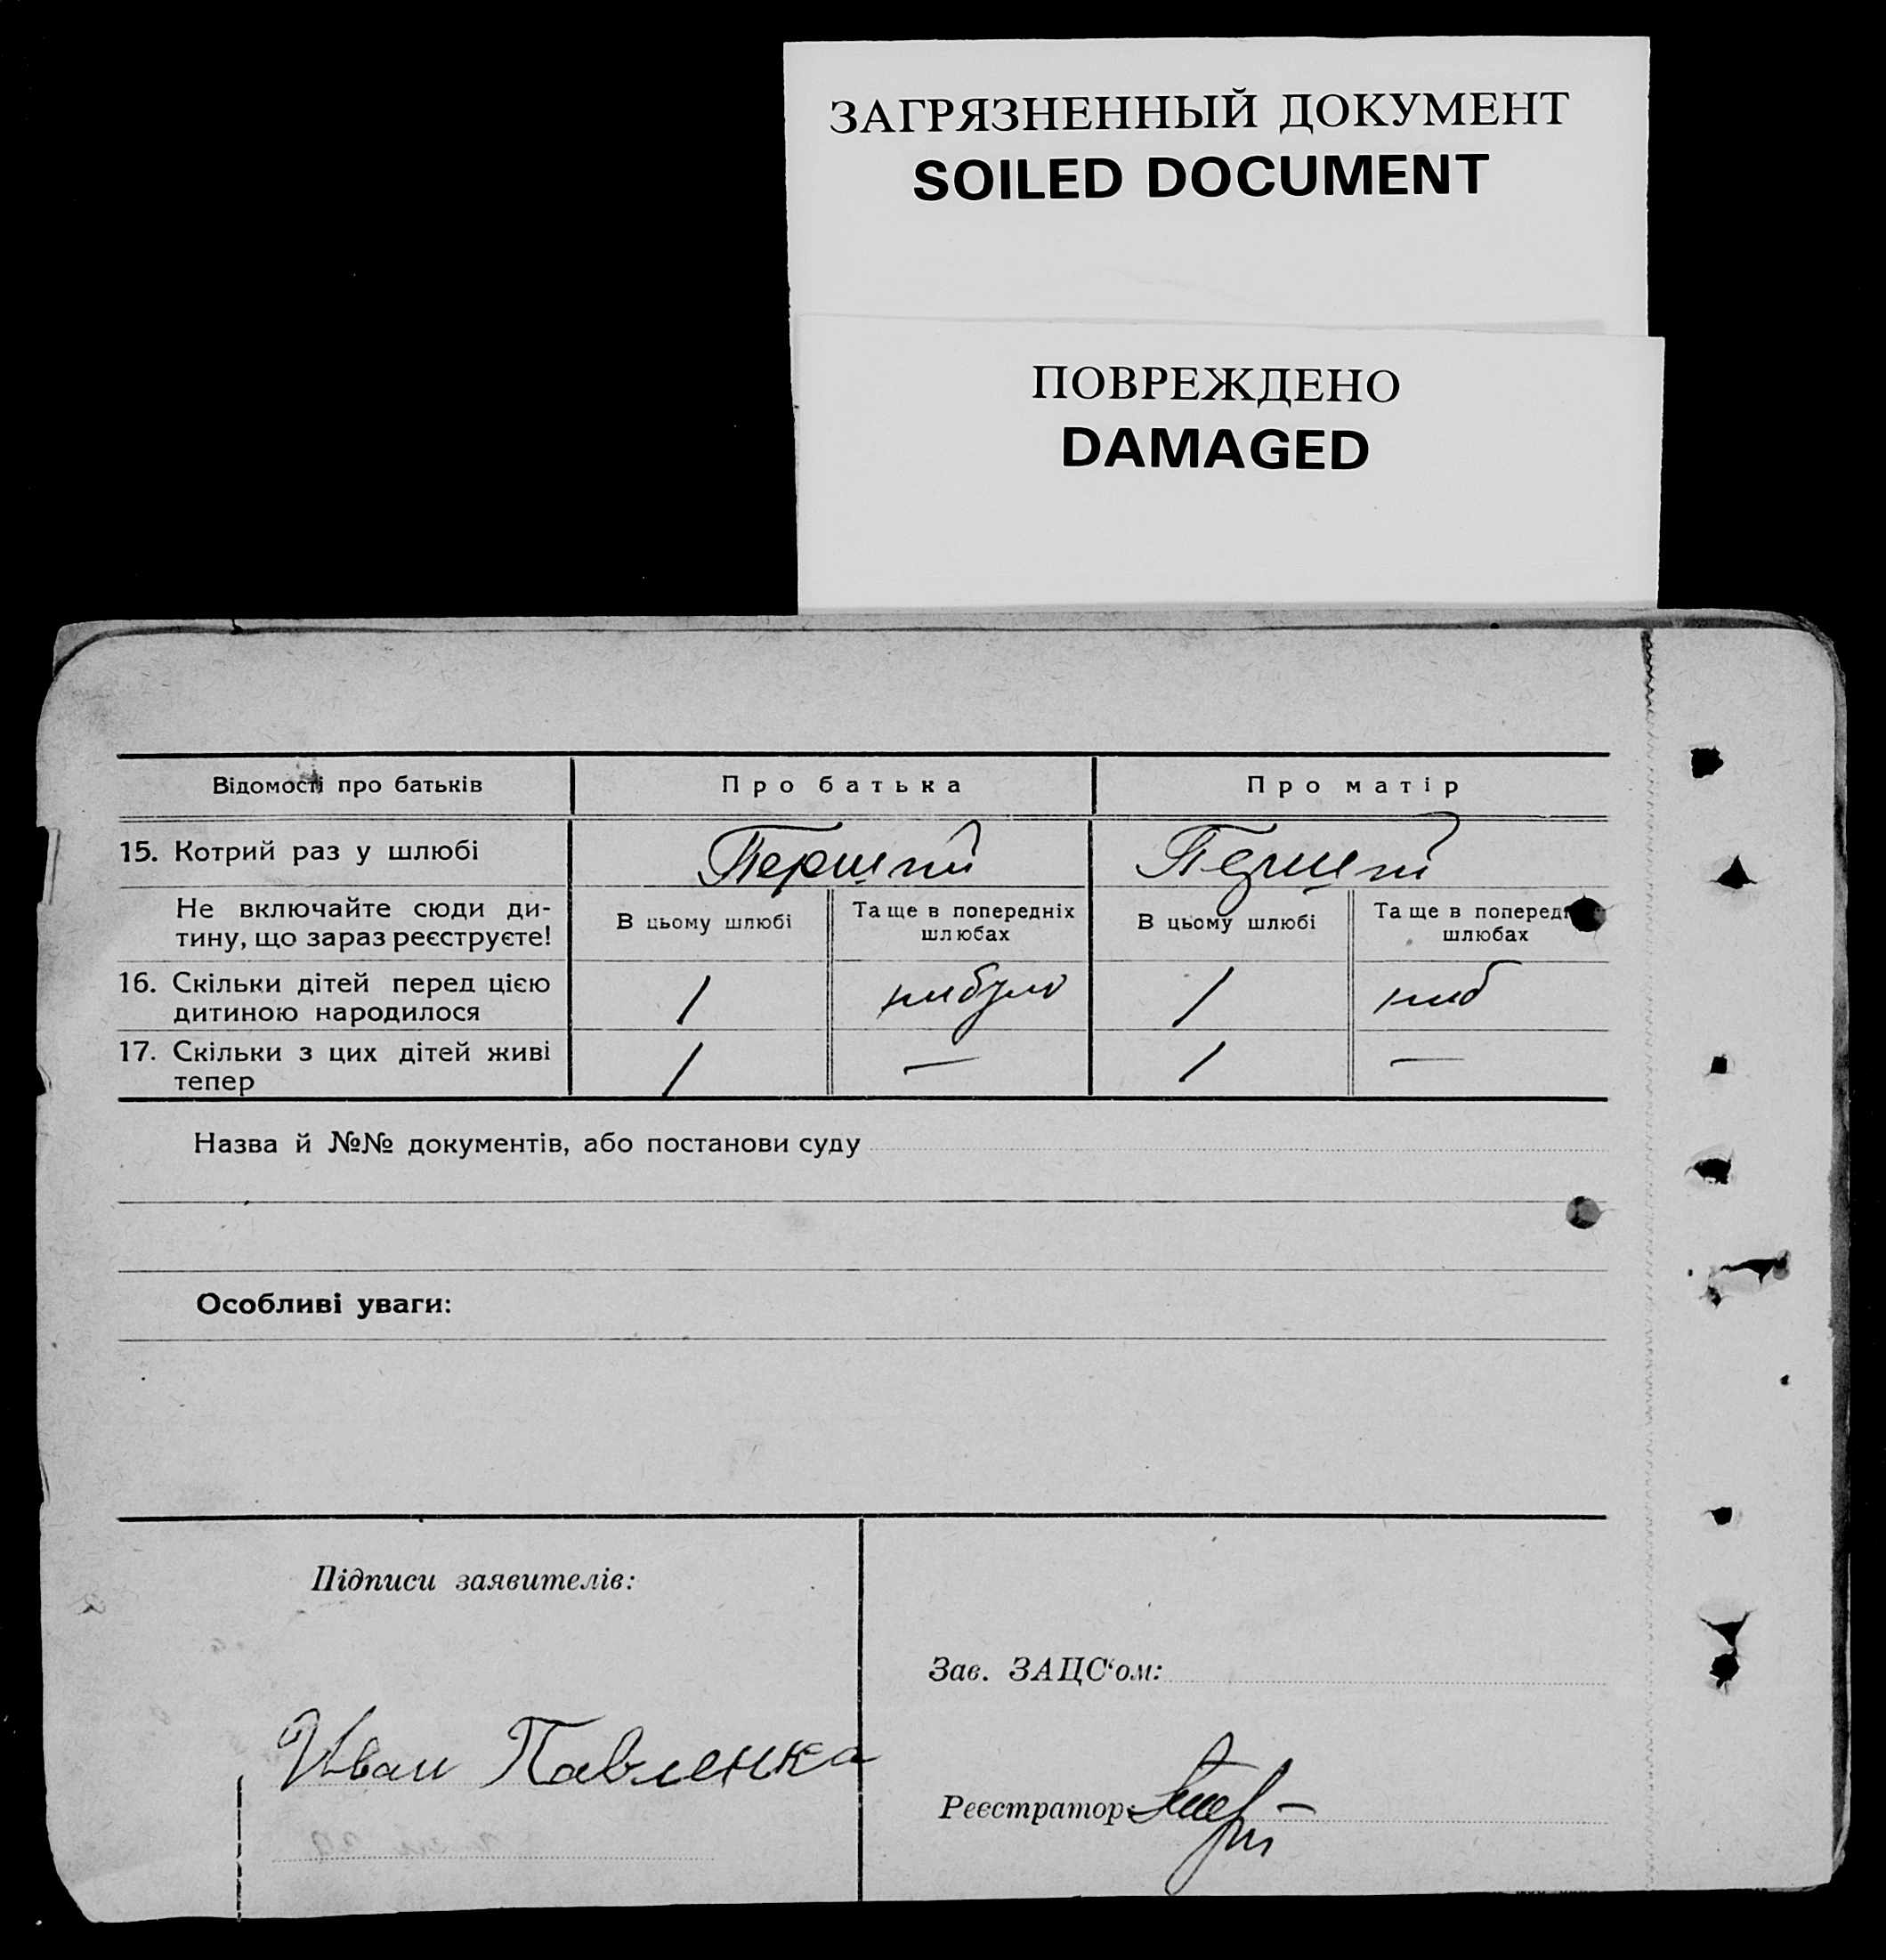 ЗАГРЯЗНЕННЫЙ ДОКУМЕНТ
SOILED DOCUMENT
ПОВРЕЖДЕНО
DAMAGED
Відомості про батьків Про батька Про матір
15. Котрий раз у шлюбі Перший Перший
Не включайте сюди ди-
тину, що зараз реєструєте!
В цьому шлюбі
Та ще в попередніх
шлюбах
В цьому шлюбі
Та ще в поперед
шлюбах
16. Скільки дітей перед цією
дитиною народилося
1 1
17. Скільки з цих дітей живі
тепер
1 — 1 —
Назва й №№ документів, або постанови суду
Особливі уваги:
Підписи заявителів:
Зав. ЗАЦС‘ом:
Иван Павленка
Реєстратор: